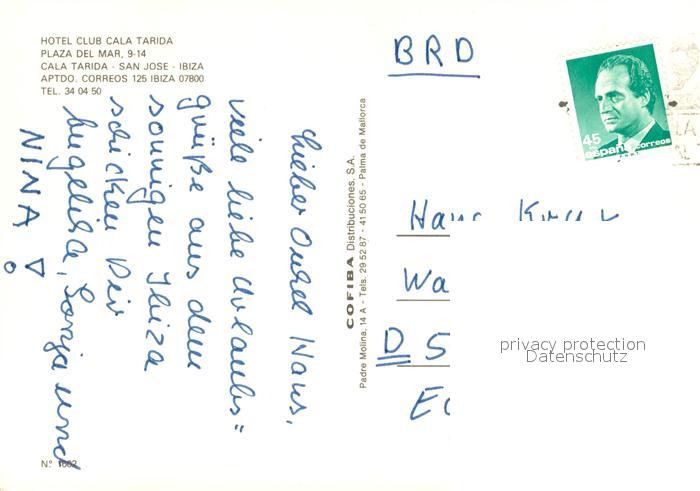 HOTEL CLUB CALA TARIDA
PLAZA DEL MAR, 9-14
CALA TARIDA - SAN JOSE - IBIZA
APTDO. CORREOS 125 IBIZA 07800
TEL. 34 04 50
Lieber Onkel Hans,
viele liebe Urlaubs=
grüße aus dem
sonnigen Ibiza
schicken Dir
Angelika, Sonja und
NINA
N.º 1602
COFIBA Distribuciones, S.A.
Padre Molina, 14 A - Tels. 29 52 87 - 41 50 65 - Palma de Mallorca
BRD
45
españa correos
LA
Hans
Wa
D 5
privacy protection
Datenschutz